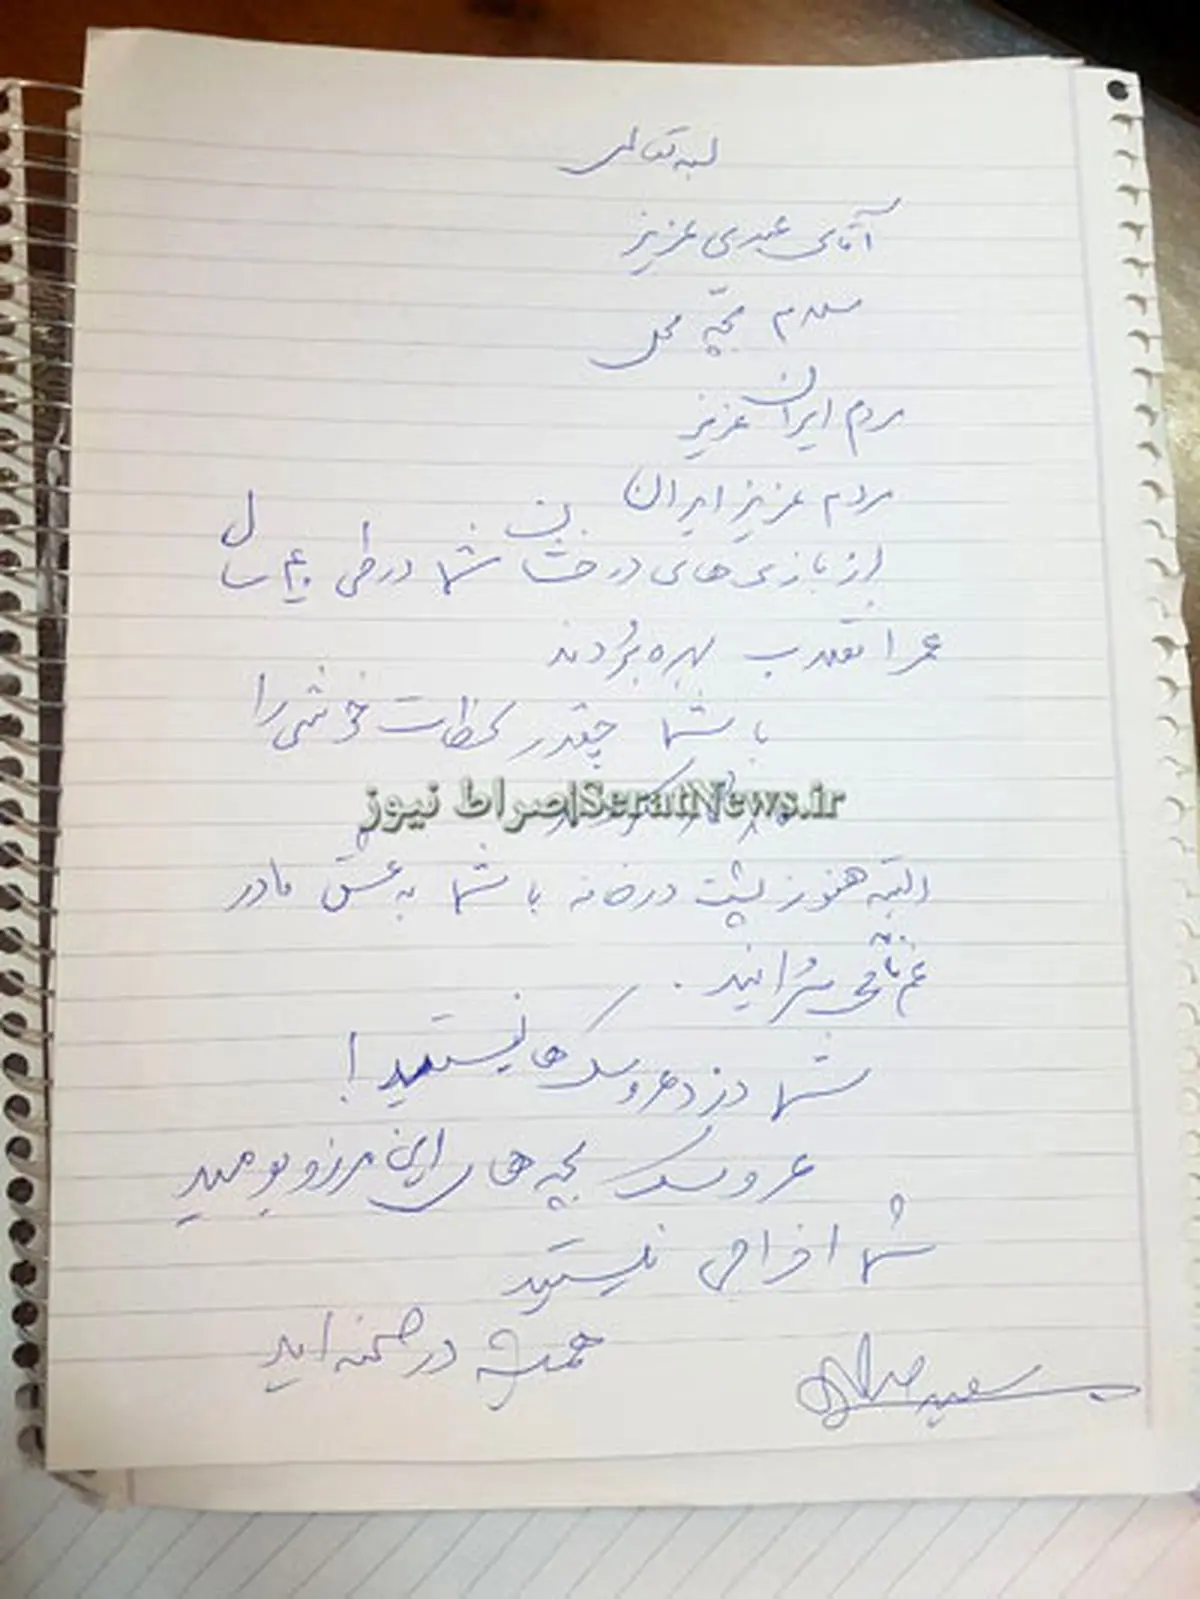 بسمه تعالی
آقای عبدی عزیز
سلام بچه محل
مردم ایران عزیز
مردم عزیز ایران
از بازی های درخشان شما در طی ۴۰ سال
عمر انقلاب بهره بُردند
با شما چقدر لحظات خوشی را
SeratNews.ir|صراط نیوز
البته هنوز پشت در خانه با شما به عشق مادر
غم نامه می سُرایند.
شما دزد عروسک ها نیستید!
عروسک بچه های این مرز و بومید
شُما اخراجی نیستید
همیشه در صحنه اید
سعید